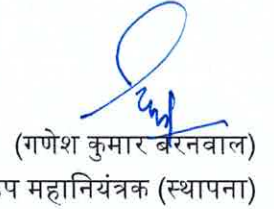 (गणेश कुमार बरनवाल)
प महानियंत्रक (स्थापना)